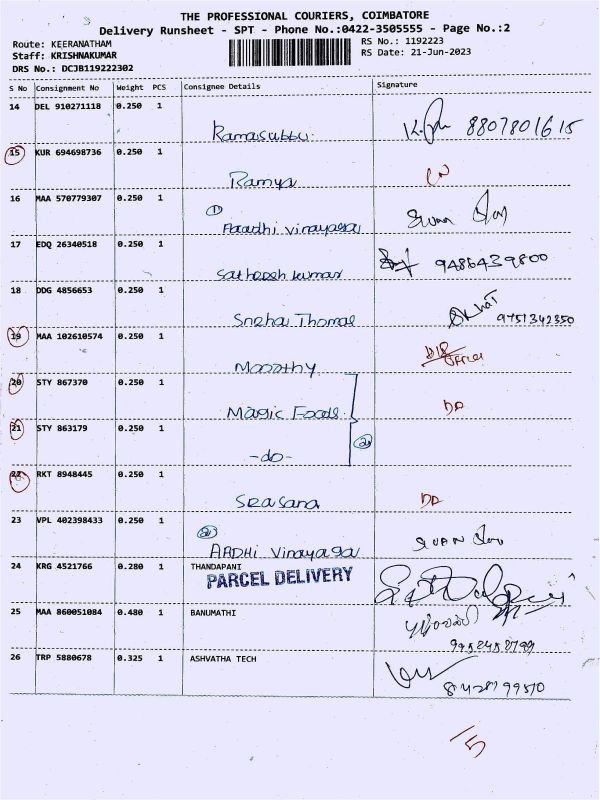 THE PROFESSIONAL COURIERS, COIMBATORE
Delivery Runsheet - SPT - Phone No.:0422-3505555 - Page No.:2
Route: KEERANATHAM RS No.: 1192223
Staff: KRISHNAKUMAR RS Date: 21-Jun-2023
DRS No.: DCJB119222302
S No Consignment No Weight PCS Consignee Details Signature
14 DEL 910271118 0.250 1
Ramasubbu 8807801615
15 KUR 694698736 0.250 1
Ramya
16 MAA 570779307 0.250 1
① Aaradhi vinayaga
17 EDQ 26340518 0.250 1
Satheesh kumar 9486439800
18 DDG 4856653 0.250 1
Sneha Thomas 9751342350
19 MAA 102610574 0.250 1
Moorthy
20 STY 867370 0.250 1
Magic Foods DD
21 STY 863179 0.250 1
-do- ②
22 RKT 8948445 0.250 1
DD
23 VPL 402398433 0.250 1
② AADHi vinayaga
24 KRG 4521766 0.280 1 THANDAPANI
PARCEL DELIVERY
25 MAA 860051084 0.480 1 BANUMATHI
26 TRP 5880678 0.325 1 ASHVATHA TECH
15